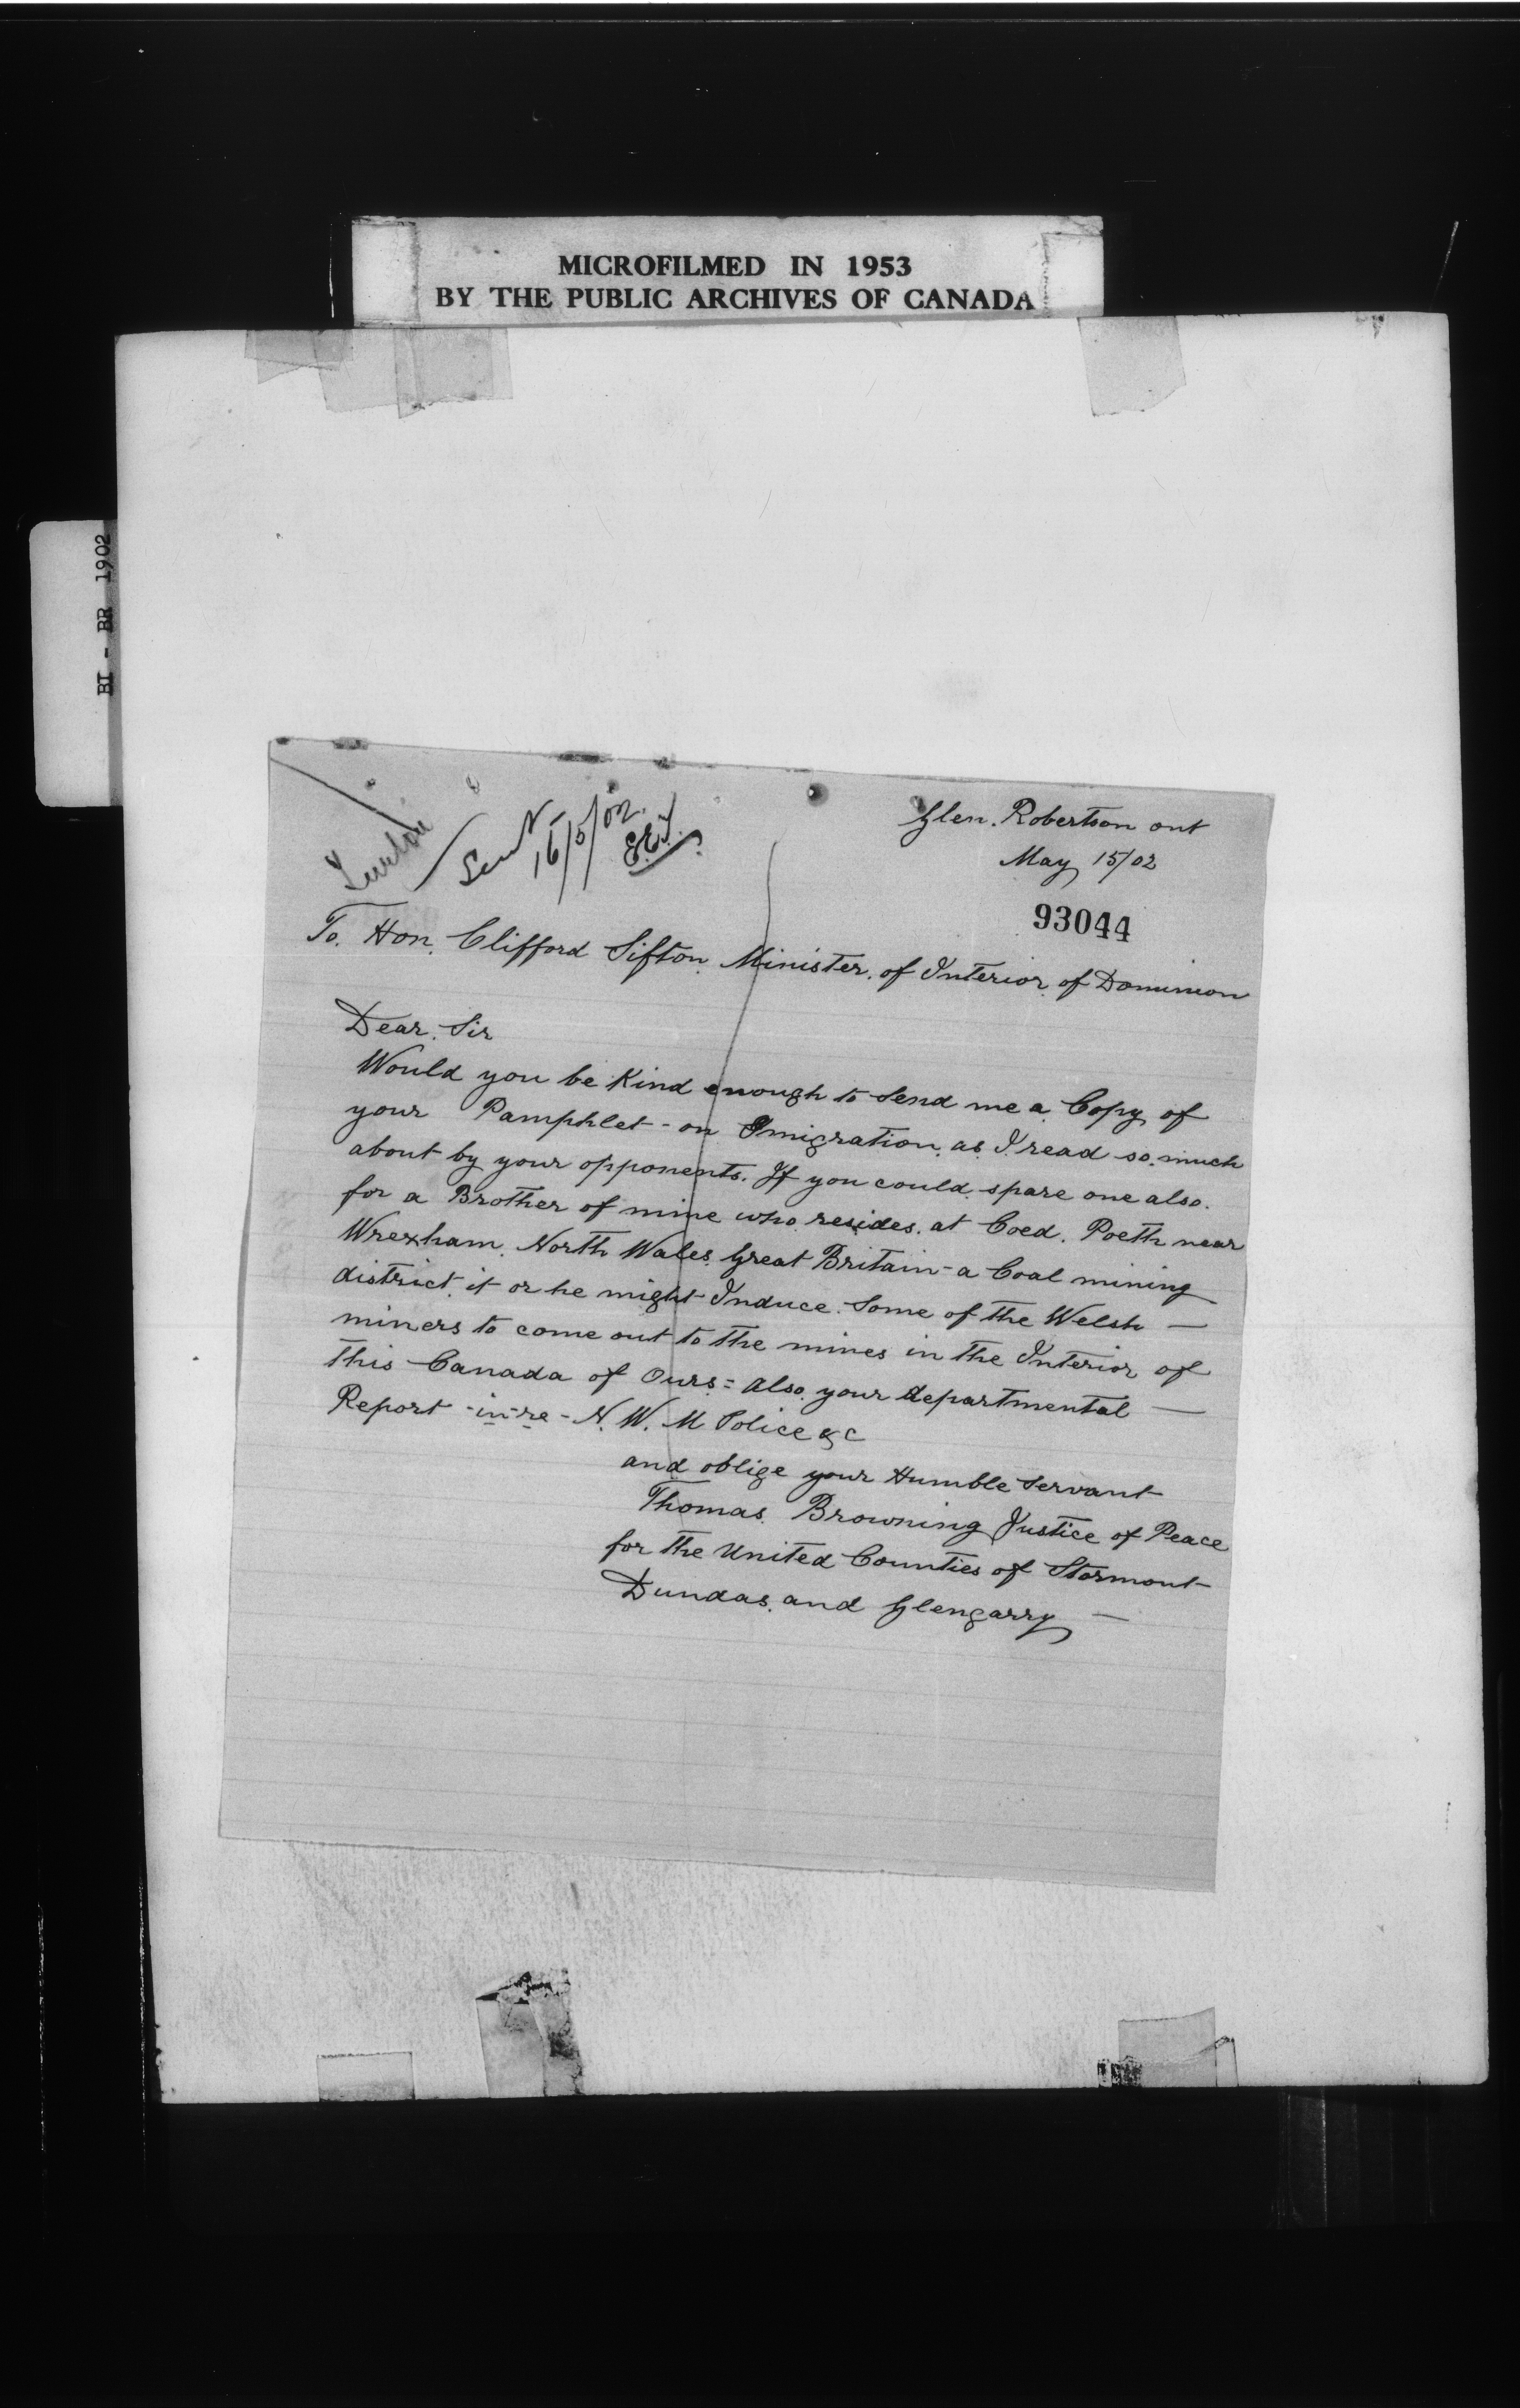 MICROFILMED IN 1953
BY THE PUBLIC ARCHIVES OF CANADA
BI - BR 1902
Sent
16/5/02
Glen. Robertson ont
May 15/02
93044
To. Hon. Clifford Sifton Minister. of Interior of Dominion
Dear. Sir
Would you be Kind enough to send me a Copy of
your Pamphlet - on Imigration. as I read so. much
about by your opponents. If you could spare one also.
for a Brother of mine who. resides. at Coed. Poeth near
Wrexham. North Wales. Great Britain - a Coal mining
district. it or he might Induce. Some of the Welsh —
miners to come out to the mines in the Interior of
this Canada of Ours = also. your departmental —
Report - in re - N. W. M Police &c
and oblige your Humble Servant
Thomas. Browning Justice of Peace
for the United Counties of Stormont
Dundas. and Glengarry —